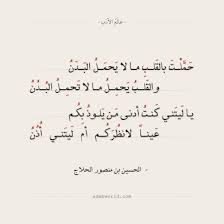 عالم الأدب
حَمَّلْتَ بالقَلبِ ما لا يَحمَلُ البَدَنُ
والقَلبُ يَحمِلُ ما لا تَحمِلُ البُدُنُ
يا لَيتَني كُنتُ أَدنى مَن يَلوذُ بِكُم
عَيناً لأَنظُرَكُم أم لَيتَني أُذُنُ
- الحسين بن منصور الحلاج
adabworld.com